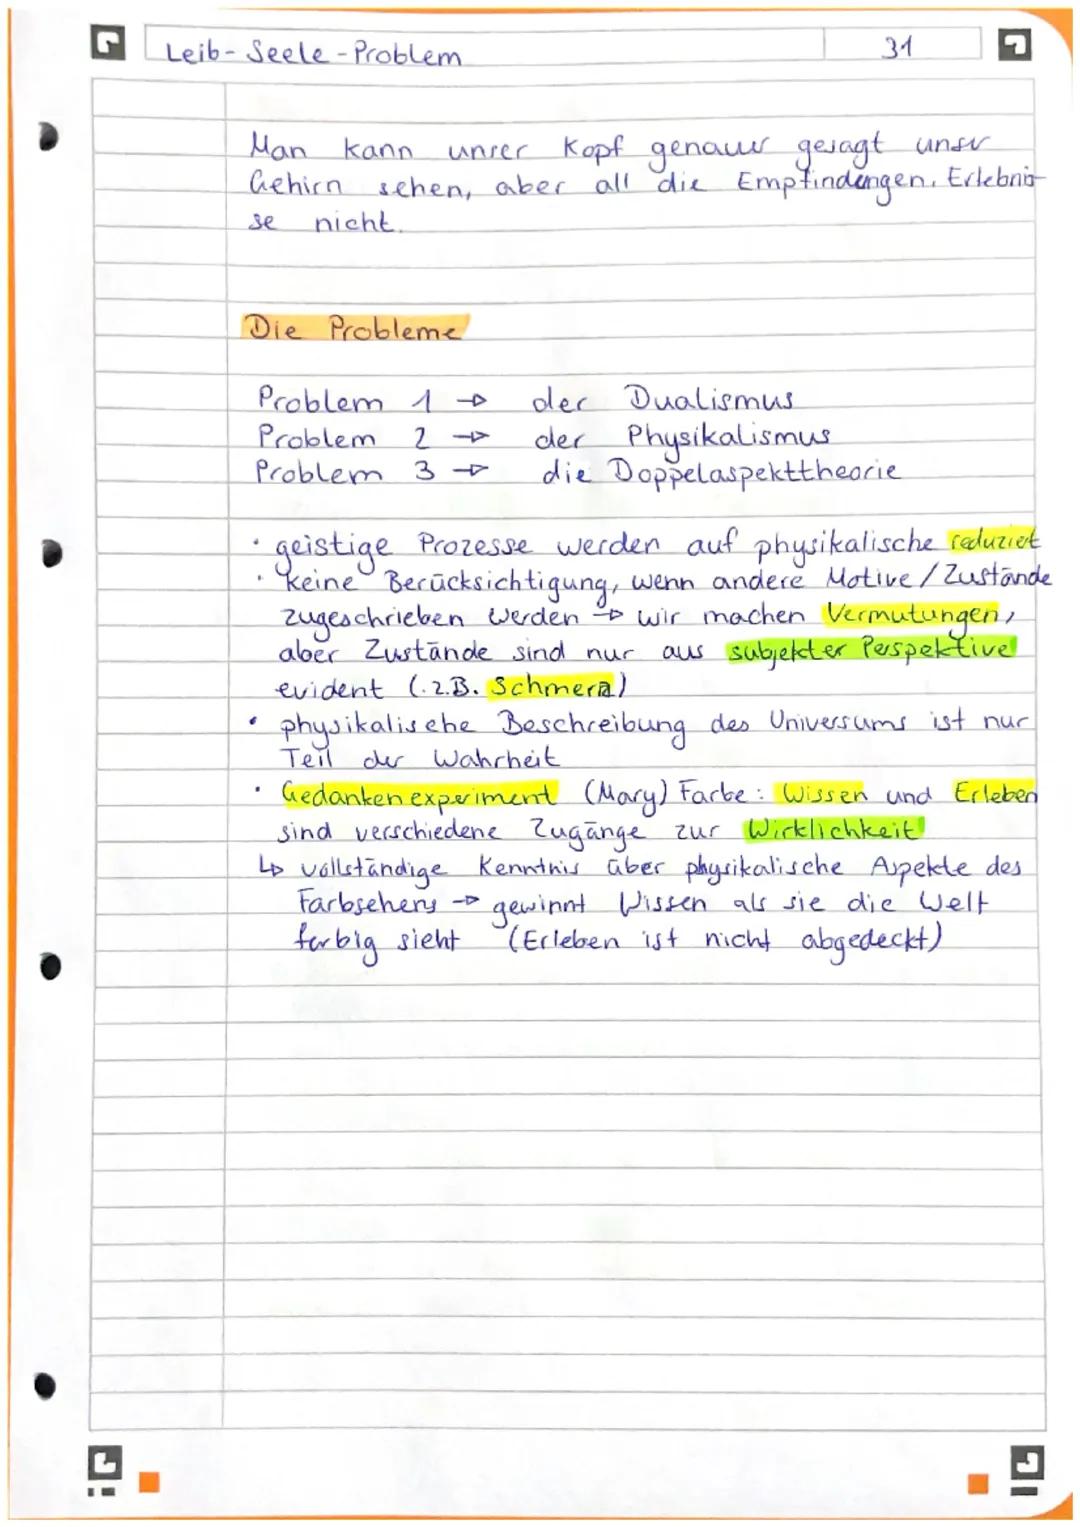 Leib-Seele-Problem 31
Man kann unser Kopf genauer gesagt unser
Gehirn sehen, aber all die Empfindungen, Erlebnis-
se nicht.
Die Probleme
Problem 1 → der Dualismus
Problem 2 → der Physikalismus
Problem 3 → die Doppelaspekttheorie
• geistige Prozesse werden auf physikalische reduziert
• keine Berücksichtigung, wenn andere Motive/Zustände
zugeschrieben werden → wir machen Vermutungen,
aber Zustände sind nur aus subjekter Perspektive
evident (z.B. Schmerz)
• physikalische Beschreibung des Universums ist nur
Teil der Wahrheit
• Gedankenexperiment (Mary) Farbe: Wissen und Erleben
sind verschiedene Zugänge zur Wirklichkeit
↳ vollständige Kenntnis über physikalische Aspekte des
Farbsehens → gewinnt Wissen als sie die Welt
farbig sieht (Erleben ist nicht abgedeckt)